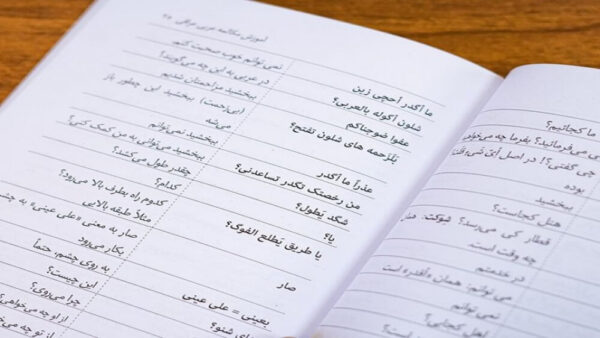 آموزش مکالمه عربی عراقی
ما أگدر أحچي زین
نمی توانم خوب صحبت کنم.
شلون أگوله بالعربي؟
در عربی به این چه می‌گویند؟
عفوا ضوجناکم
ببخشید مزاحمتان شدیم
بلزحمه هاي شلون تفتح؟
(بی‌زحمت) ببخشید این چطور باز
می‌شه
عذراً ما أگدر
ببخشید نمی‌توانم
من رخصتك تگدر تساعدني؟
ببخشید می‌توانی به من کمک کنی؟
شگد یطول؟
چقدر طول می‌کشد؟
یا؟
کدام؟
یا طریق یطلع الفوگ؟
کدوم راه بطرف بالا می‌رود؟
مثلاً طبقه‌بالایی
صار
صار به معنی «علی عینی» به
بکار می‌رود
بعیني = علی عیني
به روی چشم، حتماً
این چیست؟
شنو؟
چرا می‌روی؟
از او چه می‌خواهی؟
از تو چه
ما کجائیم؟
می‌فرمائید؟ بفرما چه می‌خواد
چی گفتی؟! در اصل أيّ شيء
بوده
ببخشید
هتل کجاست؟
قطار کی می‌رسد؟ شوکت
چه وقت است.
در خدمتم
می توانم: همان
نمی توانم
کجایی؟
است؟